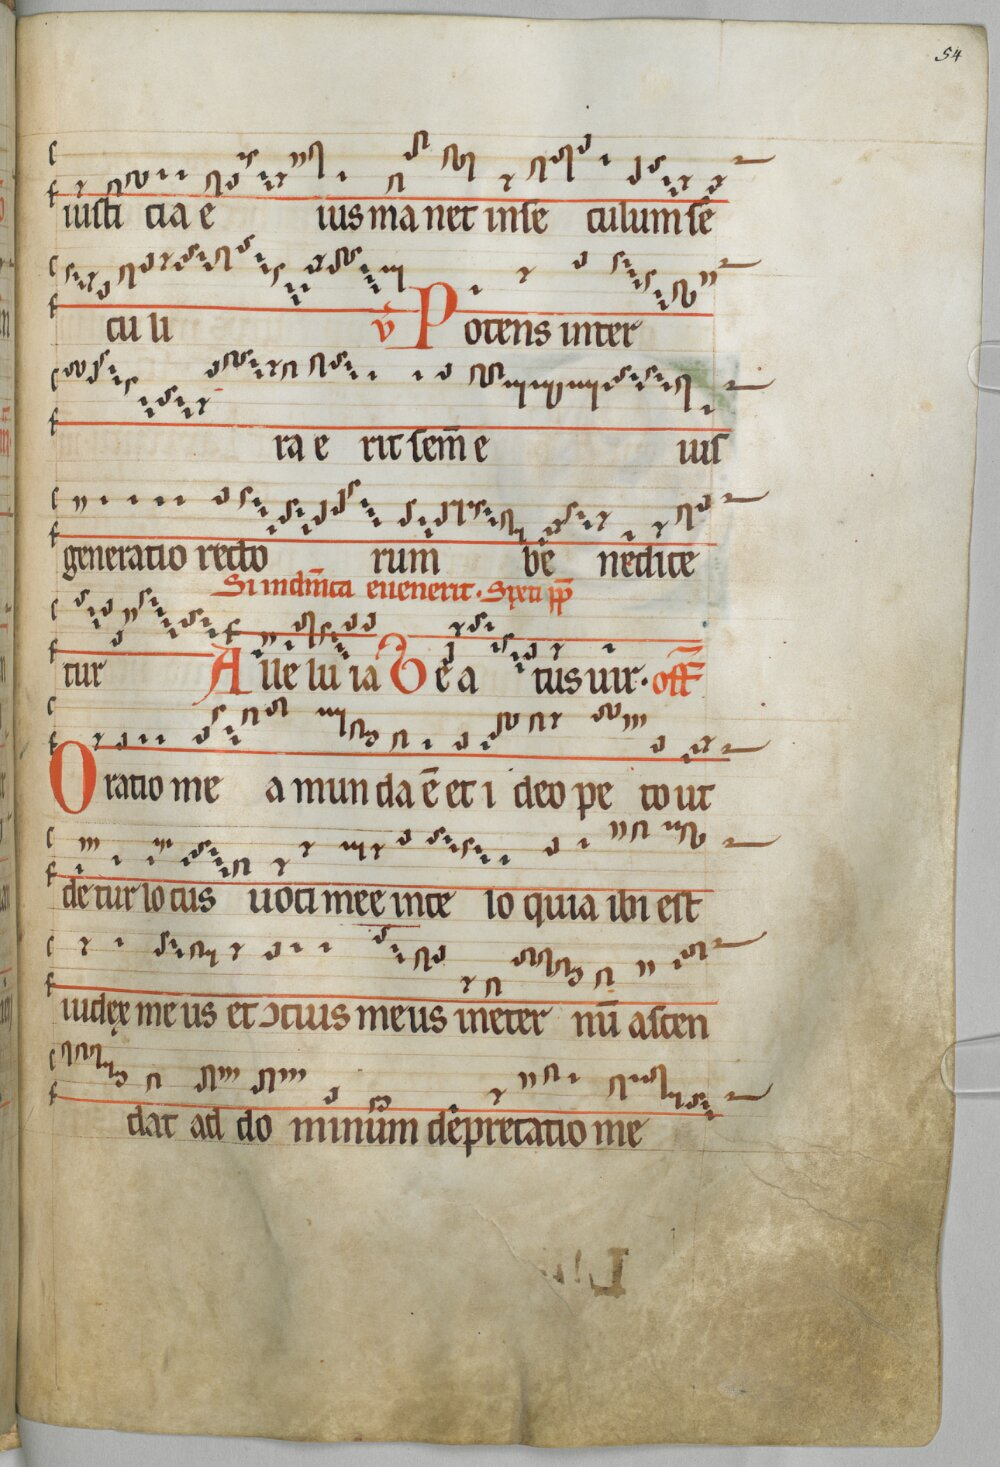 54
iusti cia e ius ma net in se culum se
cu li v̄ Potens in ter
ra e rit sem̄ e ius
generatio recto rum be nedice
Si in dn̄ica euenerit. Sixti pp̄
tur Alle lu ia Be a tus uir. off̄
Oratio me a mun da ē et i deo pe to ut
de tur lo cus uoci mee in ce lo quia ibi est
iudex me us et ↄscius meus in excer nū ascen
dat ad do minum deprecatio me